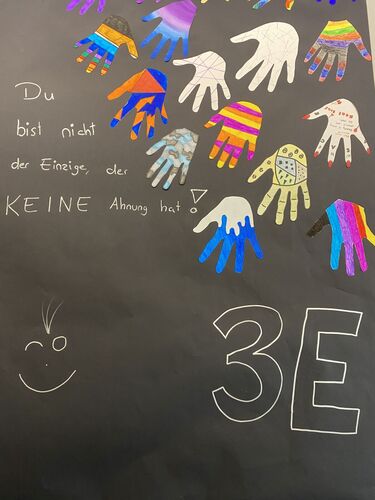 Du
bist nicht
der Einzige, der
KEINE Ahnung hat!
3E